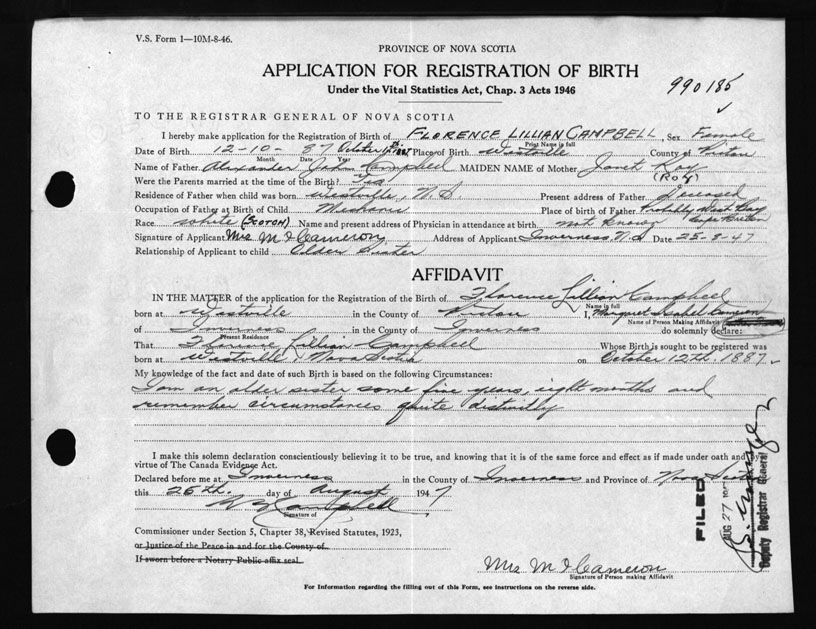 V.S. Form 1—10M-8-46.
PROVINCE OF NOVA SCOTIA
APPLICATION FOR REGISTRATION OF BIRTH
Under the Vital Statistics Act, Chap. 3 Acts 1946
990185
TO THE REGISTRAR GENERAL OF NOVA SCOTIA
I hereby make application for the Registration of Birth of FLORENCE LILLIAN CAMPBELL, Sex Female
Print Name in full
Date of Birth 12-10-87 October 12th 1887 Place of Birth Westville County of Pictou
Month Date Year
Name of Father Alexander John Campbell MAIDEN NAME of Mother Janet Roy
(ROY)
Were the Parents married at the time of the Birth? Yes
Residence of Father when child was born Westville, N.S. Present address of Father Deceased
Occupation of Father at Birth of Child Place of birth of Father Probably West Bay Cape Breton
Race white (SCOTCH) Name and present address of Physician in attendance at birth not known
Signature of Applicant Mrs M I Cameron Address of Applicant Inverness N.S. Date 25-8-47
Relationship of Applicant to child Older Sister
AFFIDAVIT
IN THE MATTER of the application for the Registration of the Birth of Florence Lillian Campbell
Name in full
born at Westville in the County of Pictou I, Margaret Isabell Cameron
Name of Person Making Affidavit
of Inverness in the County of Inverness do solemnly declare:
Present Residence
That Florence Lillian Campbell Whose Birth is sought to be registered was
born at Westville, Nova Scotia on October 12th. 1887.
My knowledge of the fact and date of such Birth is based on the following Circumstances:
I am an older sister some five years, eight months and
remember circumstances quite distinctly
I make this solemn declaration conscientiously believing it to be true, and knowing that it is of the same force and effect as if made under oath and by
virtue of The Canada Evidence Act.
Declared before me at Inverness in the County of Inverness and Province of Nova Scotia
this 26th. day of August 1947
Campbell
Signature of
Commissioner under Section 5, Chapter 38, Revised Statutes, 1923,
or Justice of the Peace in and for the County of
If sworn before a Notary Public affix seal.
Mrs M I Cameron
Signature of Person making Affidavit
For Information regarding the filling out of this Form, see instructions on the reverse side.
FILED
AUG 27 1947
Deputy Registrar General